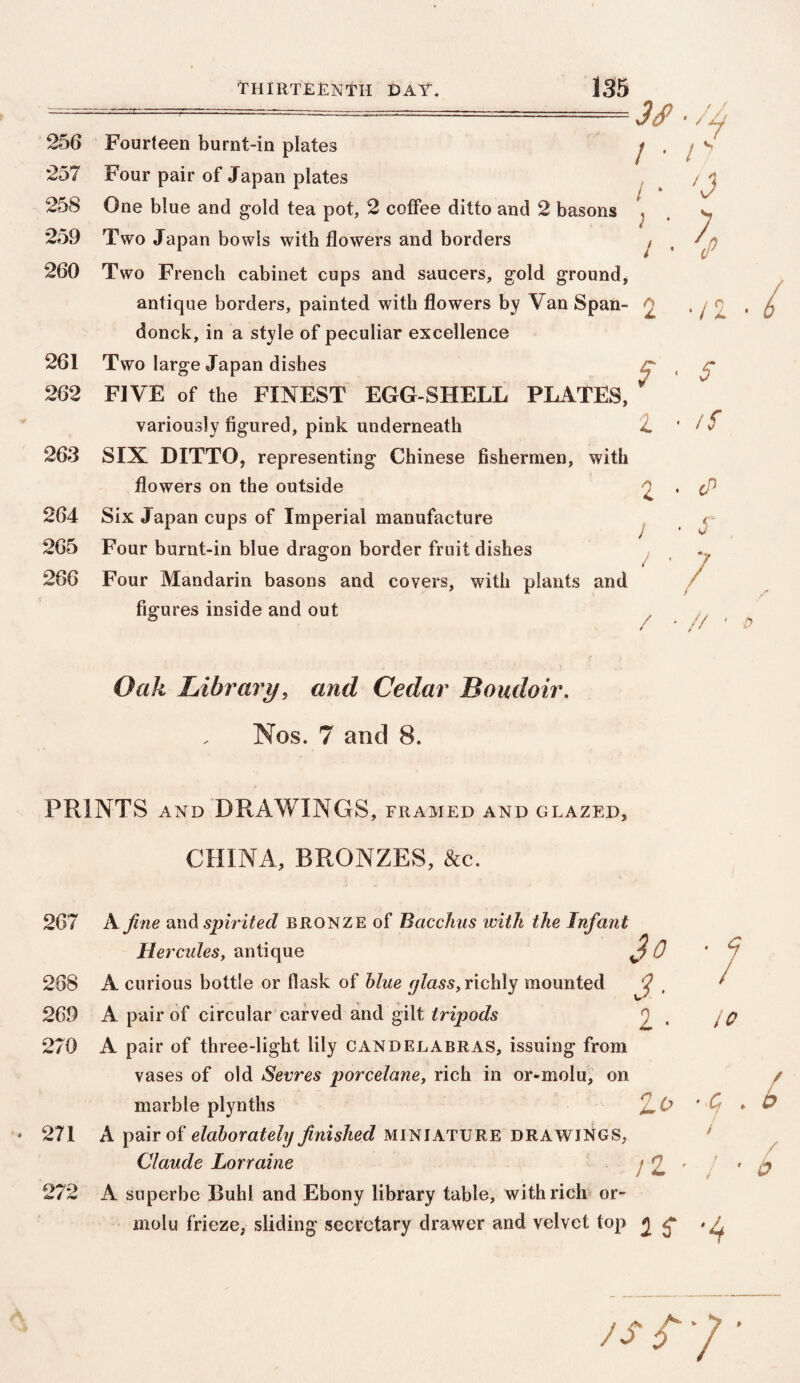 THIRTEENTH DAY. 135
38 · 14
256 Fourteen burnt-in plates 1 ·
257 Four pair of Japan plates 1 · 13
258 One blue and gold tea pot, 2 coffee ditto and 2 basons 1 · 7
259 Two Japan bowls with flowers and borders 1 ·
260 Two French cabinet cups and saucers, gold ground,
antique borders, painted with flowers by Van Span- 2 · 12 · 6
donck, in a style of peculiar excellence
261 Two large Japan dishes 5 · 5
262 FIVE of the FINEST EGG-SHELL PLATES,
variously figured, pink underneath 2 · 15
263 SIX DITTO, representing Chinese fishermen, with
flowers on the outside 2 · 8
264 Six Japan cups of Imperial manufacture 1 · 5
265 Four burnt-in blue dragon border fruit dishes 1 · 7
266 Four Mandarin basons and covers, with plants and
figures inside and out 1 · 11 · 0
Oak Library, and Cedar Boudoir.
Nos. 7 and 8.
PRINTS AND DRAWINGS, FRAMED AND GLAZED,
CHINA, BRONZES, &c.
267 A fine and spirited BRONZE of Bacchus with the Infant
Hercules, antique 30 · 9
268 A curious bottle or flask of blue glass, richly mounted 3 ·
269 A pair of circular carved and gilt tripods 2 · 10
270 A pair of three-light lily CANDELABRAS, issuing from
vases of old Sevres porcelane, rich in or-molu, on
marble plynths 20 · 9 · 6
271 A pair of elaborately finished MINIATURE DRAWINGS,
Claude Lorraine 12 · 1 · 6
272 A superbe Buhl and Ebony library table, with rich or-
molu frieze, sliding secretary drawer and velvet top 25 · 4